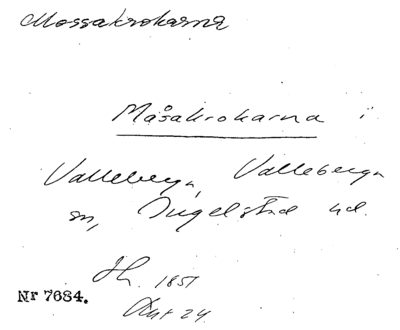 Mossakrokarna
Måsakrokarna i
Valleberga, Valleberga
sn, Ingelstad hd.
Nr 7684.
1851
Akt 24